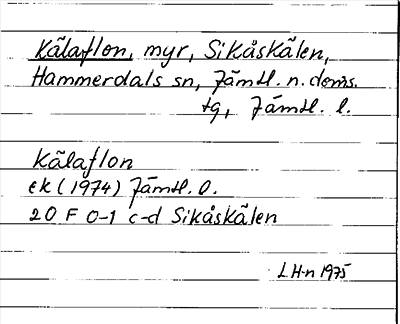 Kälaflon, myr, Sikåskälen,
Hammerdals sn, Jämtl. n. doms.
tg, Jämtl. l.
Kälaflon
ek (1974) Jämtl. O.
20 F 0-1 c-d Sikåskälen
LH-n 1975